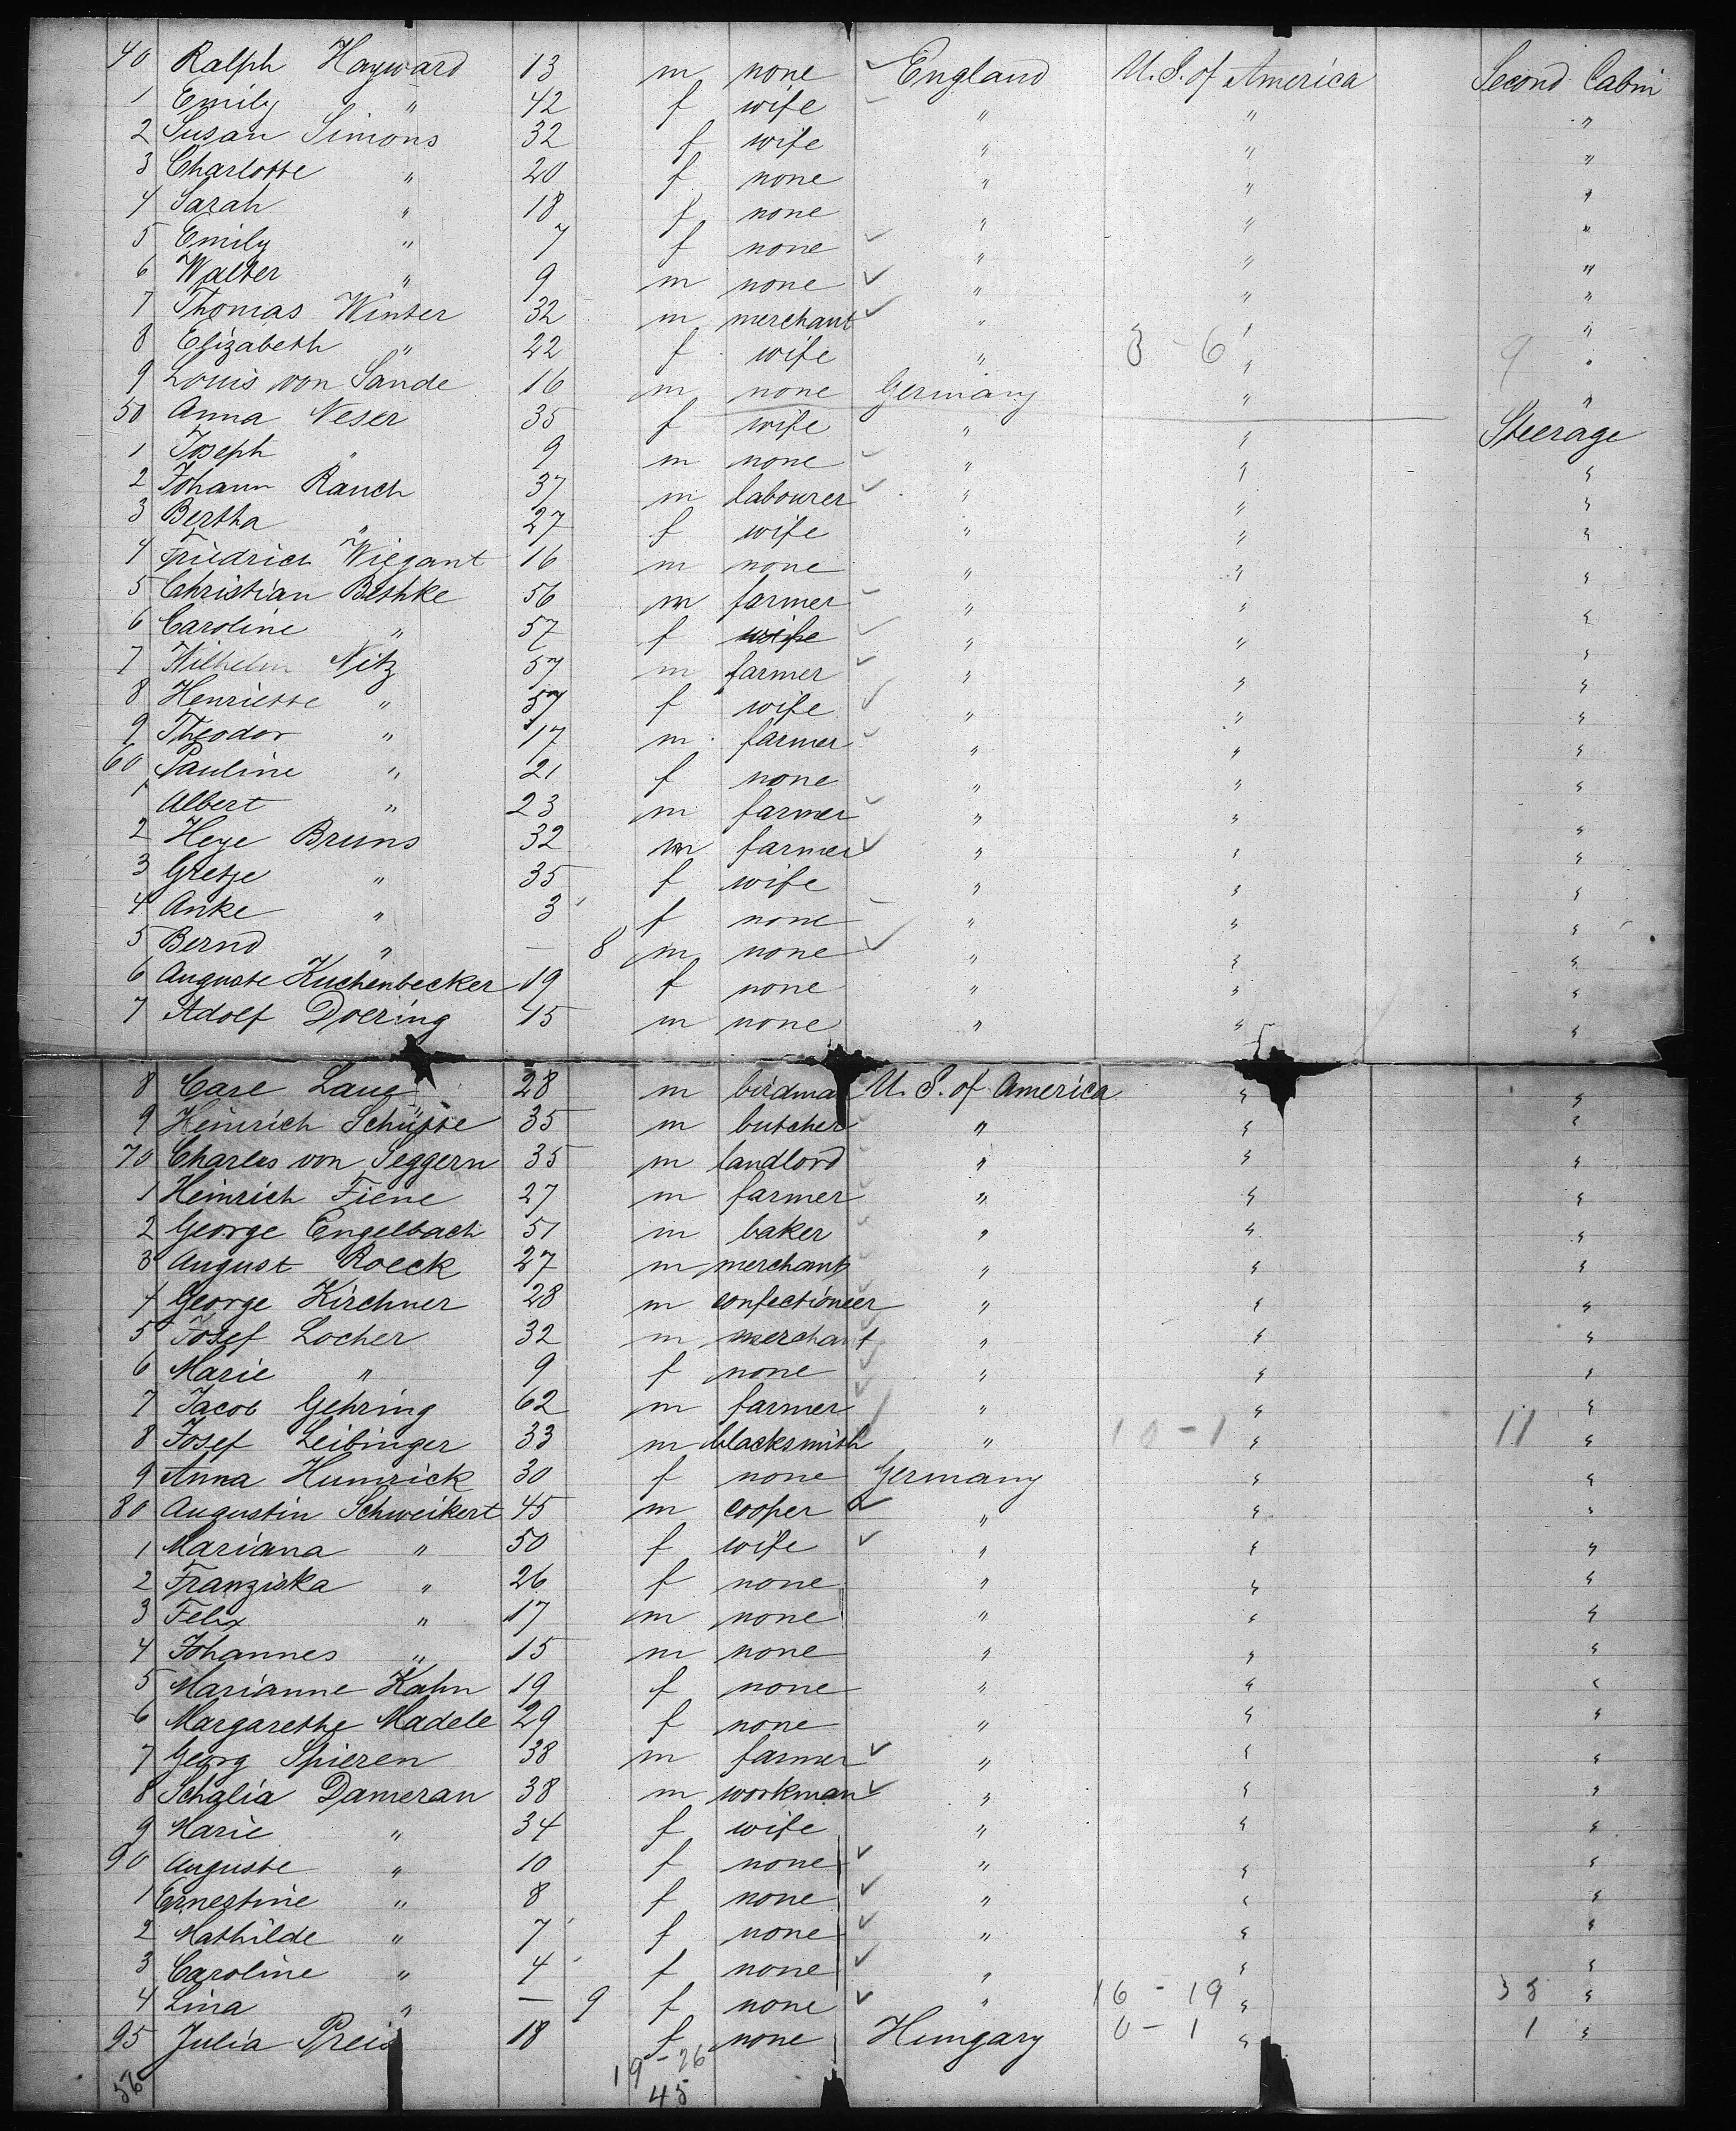 40 Ralph Hayward 13 m none ✓ England U.S. of America Second Cabin
1 Emily " 42 f wife " " "
2 Susan Simons 32 f wife " " "
3 Charlotte " 20 f none " " "
4 Sarah " 18 f none " " "
5 Emily " 7 f none ✓ " " "
6 Walter " 9 m none ✓ " " "
7 Thomas Winter 32 m merchant ✓ " " "
8 Elizabeth " 22 f wife " 3 - 6 " 9 "
9 Louis von Sande 16 m none Germany " "
50 Anna Neser 35 f wife " " Steerage
1 Joseph " 9 m none ✓ " " "
2 Johann Rauch 37 m labourer ✓ " " "
3 Bertha " 27 f wife " " "
4 Friedrich Wiegant 16 m none " " "
5 Christian Bethke 56 m farmer ✓ " " "
6 Caroline " 57 f wife ✓ " " "
7 Wilhelm Nitz 57 m farmer ✓ " " "
8 Henriette " 57 f wife ✓ " " "
9 Theodor " 17 m farmer ✓ " " "
60 Pauline " 21 f none " " "
1 Albert " 23 m farmer ✓ " " "
2 Heye Bruns 32 m farmer ✓ " " "
3 Gretje " 35 f wife " " "
4 Anke " 3 f none " " "
5 Bernd " — 8 m none ✓ " " "
6 Auguste Kuchenbecker 19 f none " " "
7 Adolf Doering 45 m none " " "
8 Carl Lang 28 m birdma U. S. of America " "
9 Heinrich Schütte 35 m butcher " " "
70 Charles von Seggern 35 m landlord " " "
1 Heinrich Fiene 27 m farmer " " "
2 George Engelbach 51 m baker " " "
3 August Roeck 27 m merchant " " "
4 George Kirchner 28 m confectioneer " " "
5 Josef Locher 32 m merchant " " "
6 Marie " 9 f none ✓ " " "
7 Jacob Gehring 62 m farmer ✓ " " "
8 Josef Leibinger 33 m blacksmith " 10 - 1 " 11 "
9 Anna Humrick 30 f none Germany " "
80 Augustin Schweikert 45 m cooper ✓ " " "
1 Mariana " 50 f wife ✓ " " "
2 Franziska " 26 f none " " "
3 Felix " 17 m none " " "
4 Johannes " 15 m none " " "
5 Marianne Kahn 19 f none " " "
6 Margarethe Madele 29 f none " " "
7 Georg Spieren 38 m farmer ✓ " " "
8 Schalia Dameran 38 m workman ✓ " " "
9 Marie " 34 f wife " " "
90 Auguste " 10 f none ✓ " " "
1 Ernestine " 8 f none ✓ " " "
2 Mathilde " 7 f none ✓ " " "
3 Caroline " 4 f none ✓ " " "
4 Lina " — 9 f none ✓ " 16 - 19 " 35 "
95 Julia Preis 18 f none Hungary 0 - 1 " 1 "
56 19 - 26
45